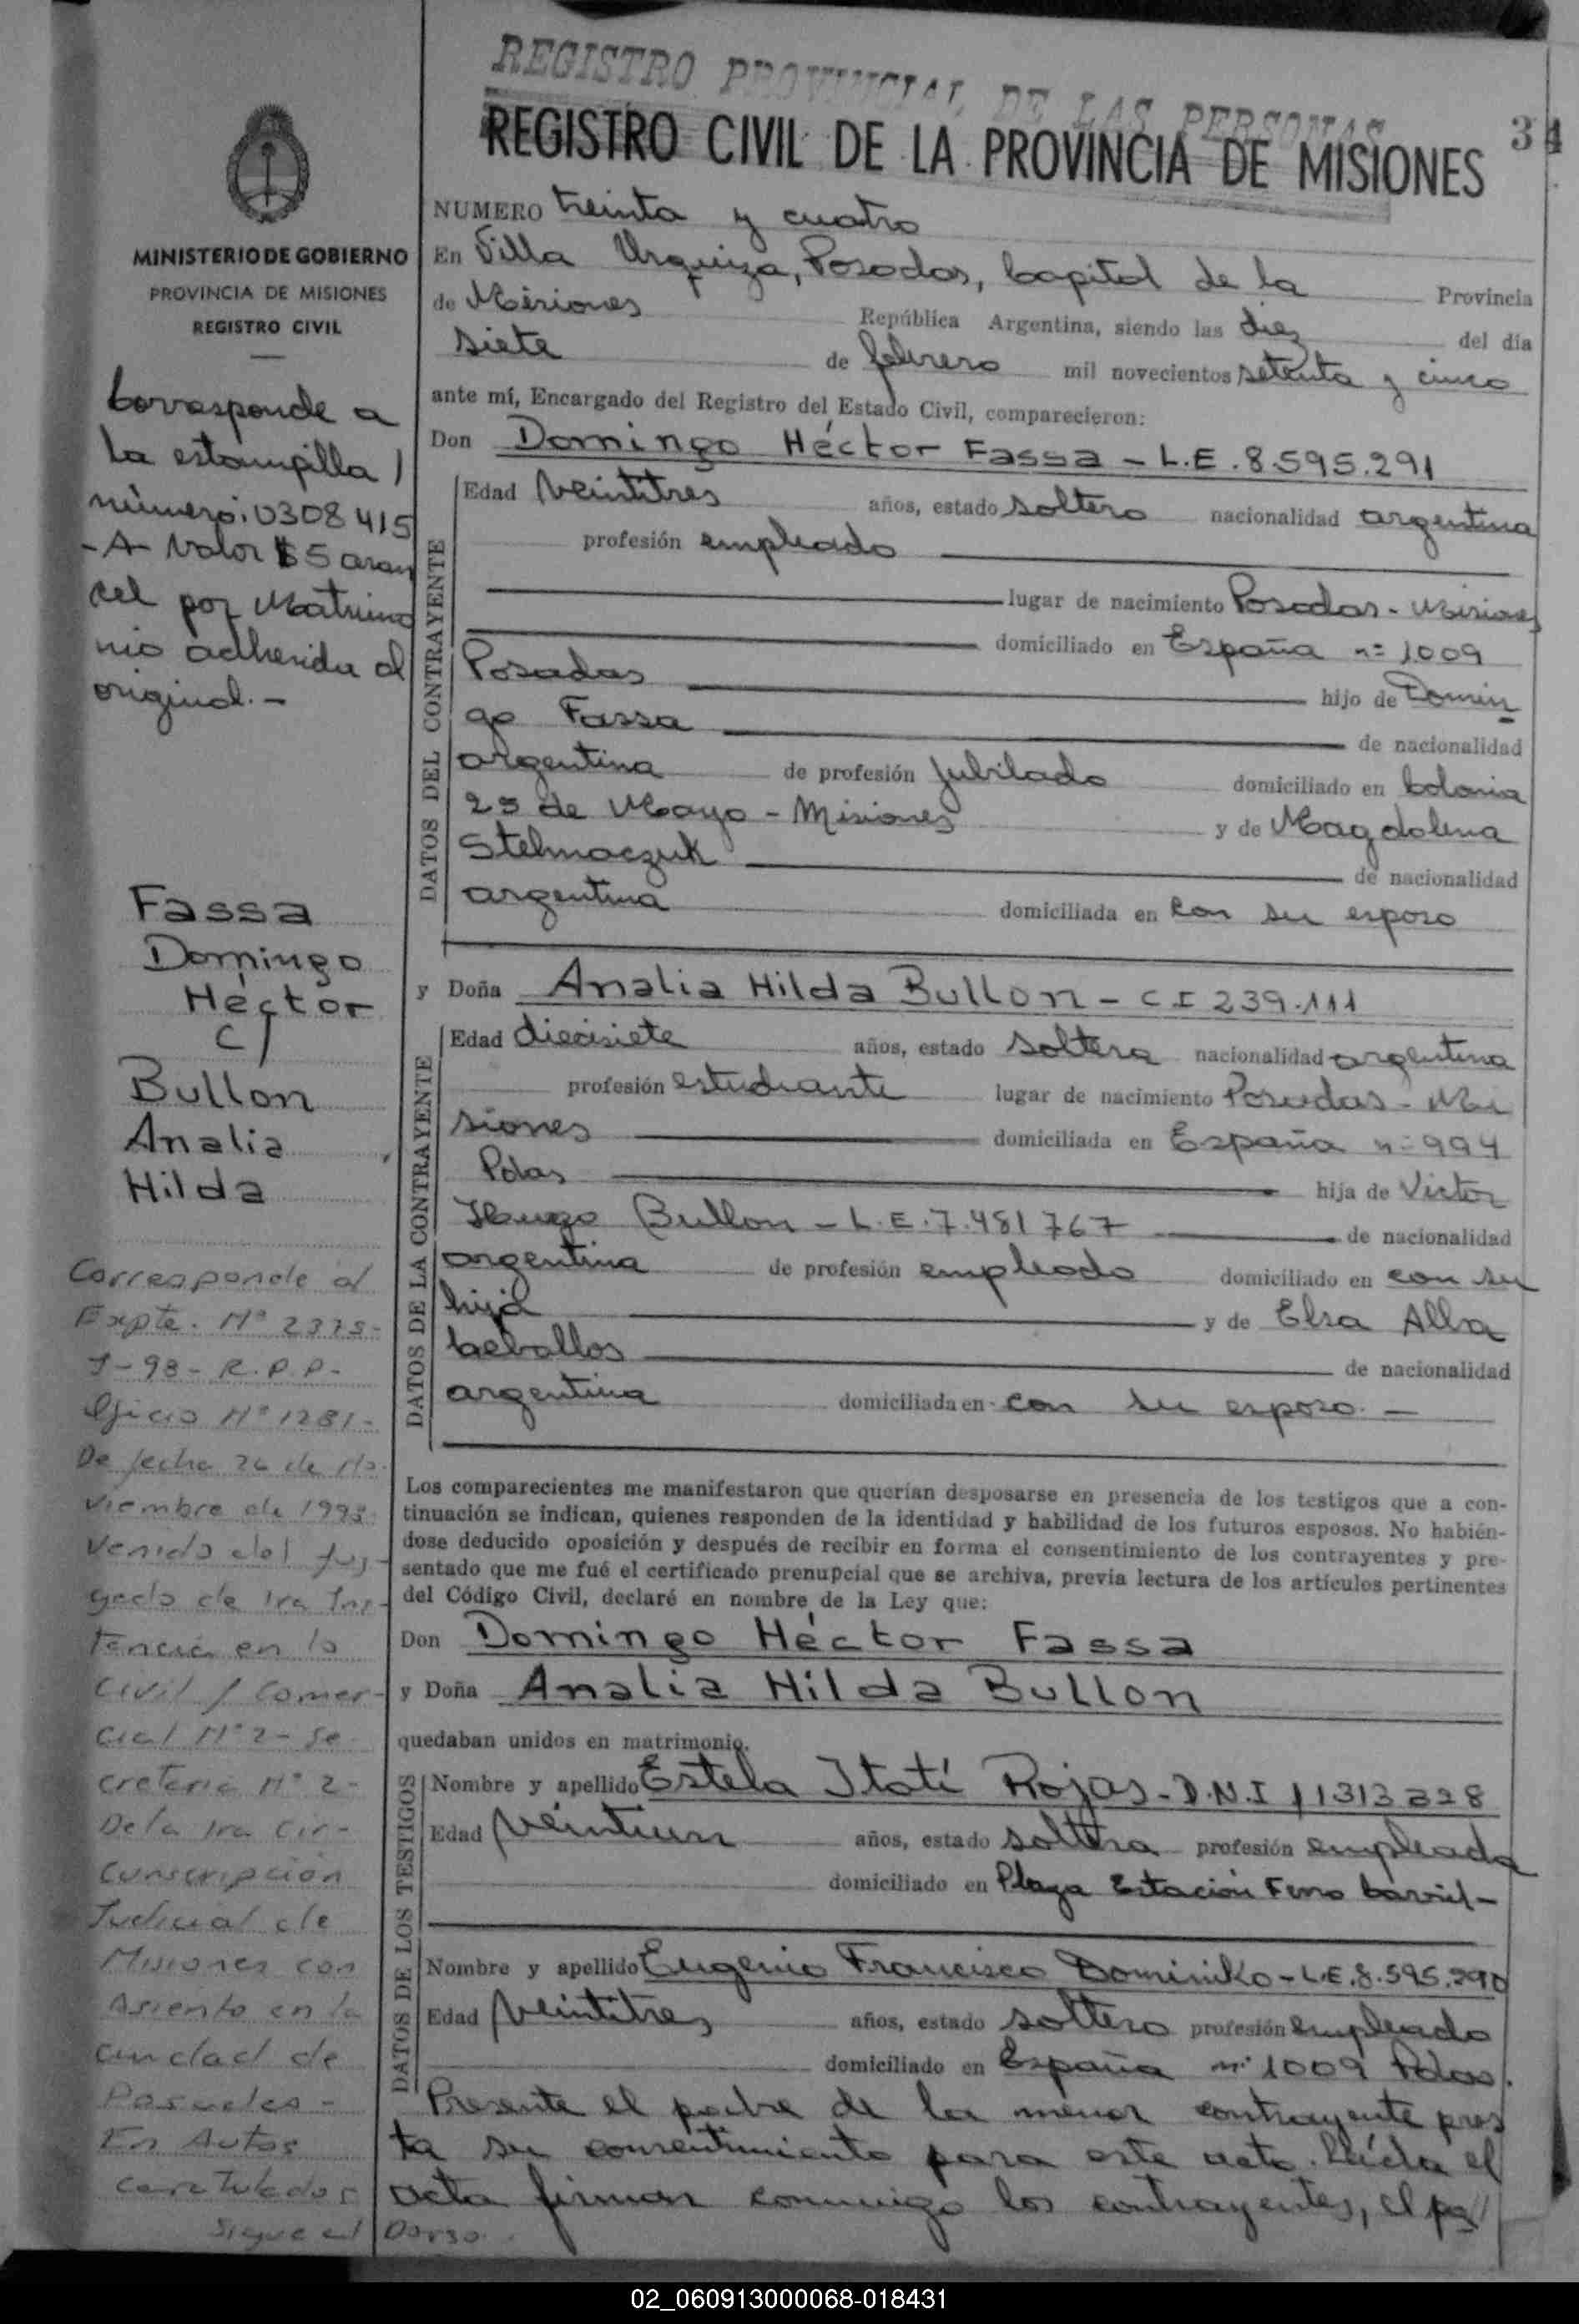 REGISTRO PROVINCIAL DE LAS PERSONAS
REGISTRO CIVIL DE LA PROVINCIA DE MISIONES
34
MINISTERIO DE GOBIERNO
PROVINCIA DE MISIONES
REGISTRO CIVIL
Corresponde a
la estampilla /
número: 0308415
- A - Valor $5 aran
cel por Matrimo
nio adherida al
original. -
Fassa
Domingo
Héctor
C/
Bullon
Analia
Hilda
Corresponde al
Expte. Nº 2375-
J-98- R.P.P-
Oficio Nº 1281-
De fecha 26 de No
viembre de 1993
Venido del Juz-
gado de 1ra Ins-
tancia en lo
Civil / Comer-
cial Nº 2- Se
cretaria Nº 2-
De la 1ra Cir-
cunscripción
Judicial de
Misiones con
Asiento en la
ciudad de
Posadas -
En Autos
caratulados
Sigue al Dorso.
NUMERO treinta y cuatro
En Villa Urquiza, Posadas, Capital de la Provincia
de Misiones República Argentina, siendo las diez del día
siete de febrero mil novecientos setenta y cinco
ante mí, Encargado del Registro del Estado Civil, comparecieron:
Don Domingo Héctor Fassa - L.E. 8.595.291
DATOS DEL CONTRAYENTE
Edad veintitres años, estado soltero nacionalidad argentina
profesión empleado
lugar de nacimiento Posadas - Misiones
domiciliado en España nº 1009
Posadas hijo de Domin
go Fassa de nacionalidad
argentina de profesión Jubilado domiciliado en Colonia
25 de Mayo - Misiones y de Magdalena
Stelmaczuk de nacionalidad
argentina domiciliada en con su esposo
y Doña Analia Hilda Bullon - C I 239.111
DATOS DE LA CONTRAYENTE
Edad diecisiete años, estado soltera nacionalidad argentina
profesión estudiante lugar de nacimiento Posadas - Mi
siones domiciliada en España nº 994
Pdas hija de Victor
Hugo Bullon - L.E. 7.481767 de nacionalidad
argentina de profesión empleado domiciliado en con su
hija y de Elsa Alba
Ceballos de nacionalidad
argentina domiciliada en con su esposo. -
Los comparecientes me manifestaron que querían desposarse en presencia de los testigos que a con-
tinuación se indican, quienes responden de la identidad y habilidad de los futuros esposos. No habién-
dose deducido oposición y después de recibir en forma el consentimiento de los contrayentes y pre-
sentado que me fué el certificado prenupcial que se archiva, previa lectura de los artículos pertinentes
del Código Civil, declaré en nombre de la Ley que:
Don Domingo Héctor Fassa
y Doña Analia Hilda Bullon
quedaban unidos en matrimonio.
DATOS DE LOS TESTIGOS
Nombre y apellido Estela Itatí Rojas - D.N.I 11313328
Edad veintiun años, estado soltera profesión empleada
domiciliado en Plaza Estación Ferro Carril -
Nombre y apellido Eugenio Francisco Dominiko - L.E. 8.595.290
Edad veintitres años, estado soltero profesión empleado
domiciliado en España nº 1009 Pdas.
Presente el padre de la menor contrayente pres
ta su consentimiento para este acto. Leída el
acta firman conmigo los contrayentes, el pa//
02_060913000068-018431